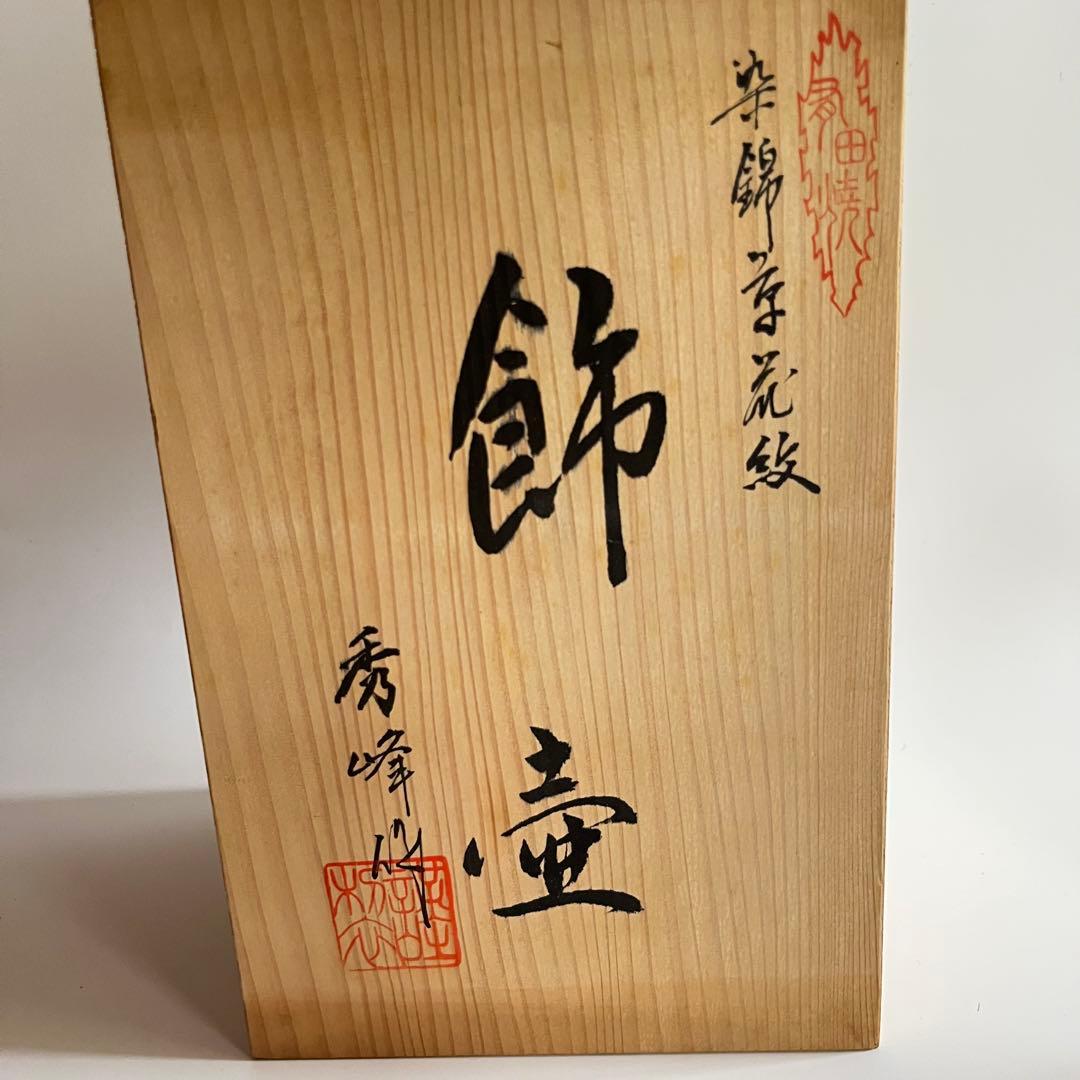 有田焼
染錦草花紋
飾壷
秀峰作